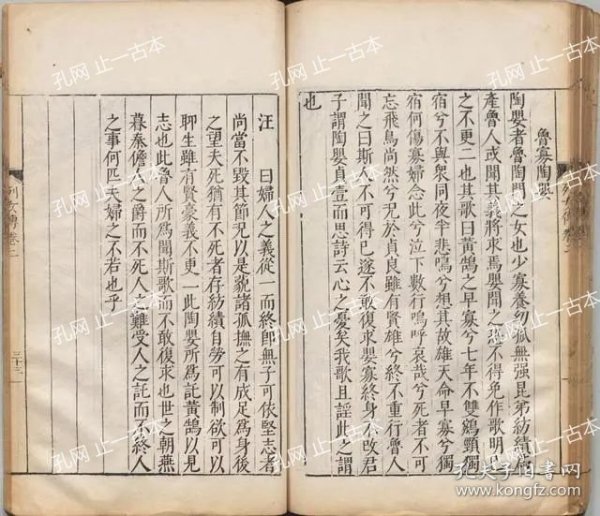 魯寡陶嬰
陶嬰者魯陶門之女也少寡養幼孤無强昆弟紡績爲
產魯人或聞其義將求焉嬰聞之恐不得免作歌明己
之不更二也其歌曰黃鵠之早寡兮七年不雙鵷頸獨
宿兮不與衆同夜半悲鳴兮想其故雄天命早寡兮獨
宿何傷寡婦念此兮泣下數行嗚呼哀哉兮死者不可
忘飛鳥尚然兮况於貞良雖有賢雄兮終不重行魯人
聞之曰斯女不可得已遂不敢復求嬰寡終身不改君
子謂陶嬰貞壹而思詩云心之憂矣我歌且謡此之謂
也
汪 曰婦人之義從一而終卽無子可依堅志者
尚當不毀其節况以是藐諸孤撫之有成足爲身後
之望夫死猶有不死者存紡績自勞可以制欲可以
聊生雖有賢豪義不更一此陶嬰所爲託黃鵠以見
志也此魯人所爲聞斯歌而不敢復求也世之朝燕
暮秦儋人之爵而不死人之難受人之託而不終人
之事何匹夫婦之不若也乎
列女傳卷二
三十三
孔网 止一古本
孔夫子旧书网
www.kongfz.com